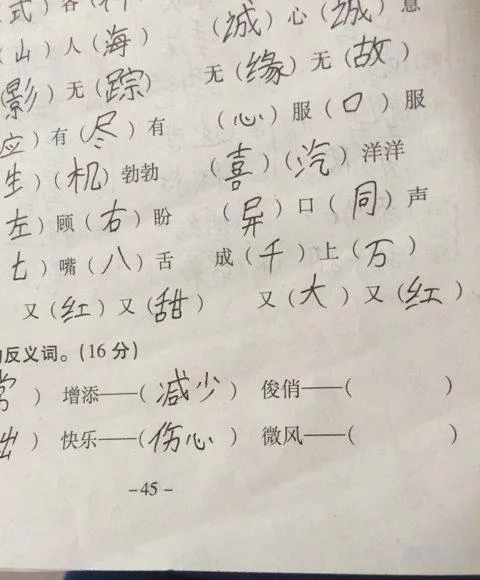 式）各（样
（诚）心（诚）意
（山）人（海）
（影）无（踪）　无（缘）无（故）
应）有（尽）有　（心）服（口）服
生）（机）勃勃　（喜）（汽）洋洋
左）顾（右）盼　（异）口（同）声
七）嘴（八）舌　成（千）上（万）
又（红）又（甜）　又（大）又（红）
反义词。（16分）
常）　增添——（减少）　俊俏——（　　）
出）　快乐——（伤心）　微风——（　　）
-45-